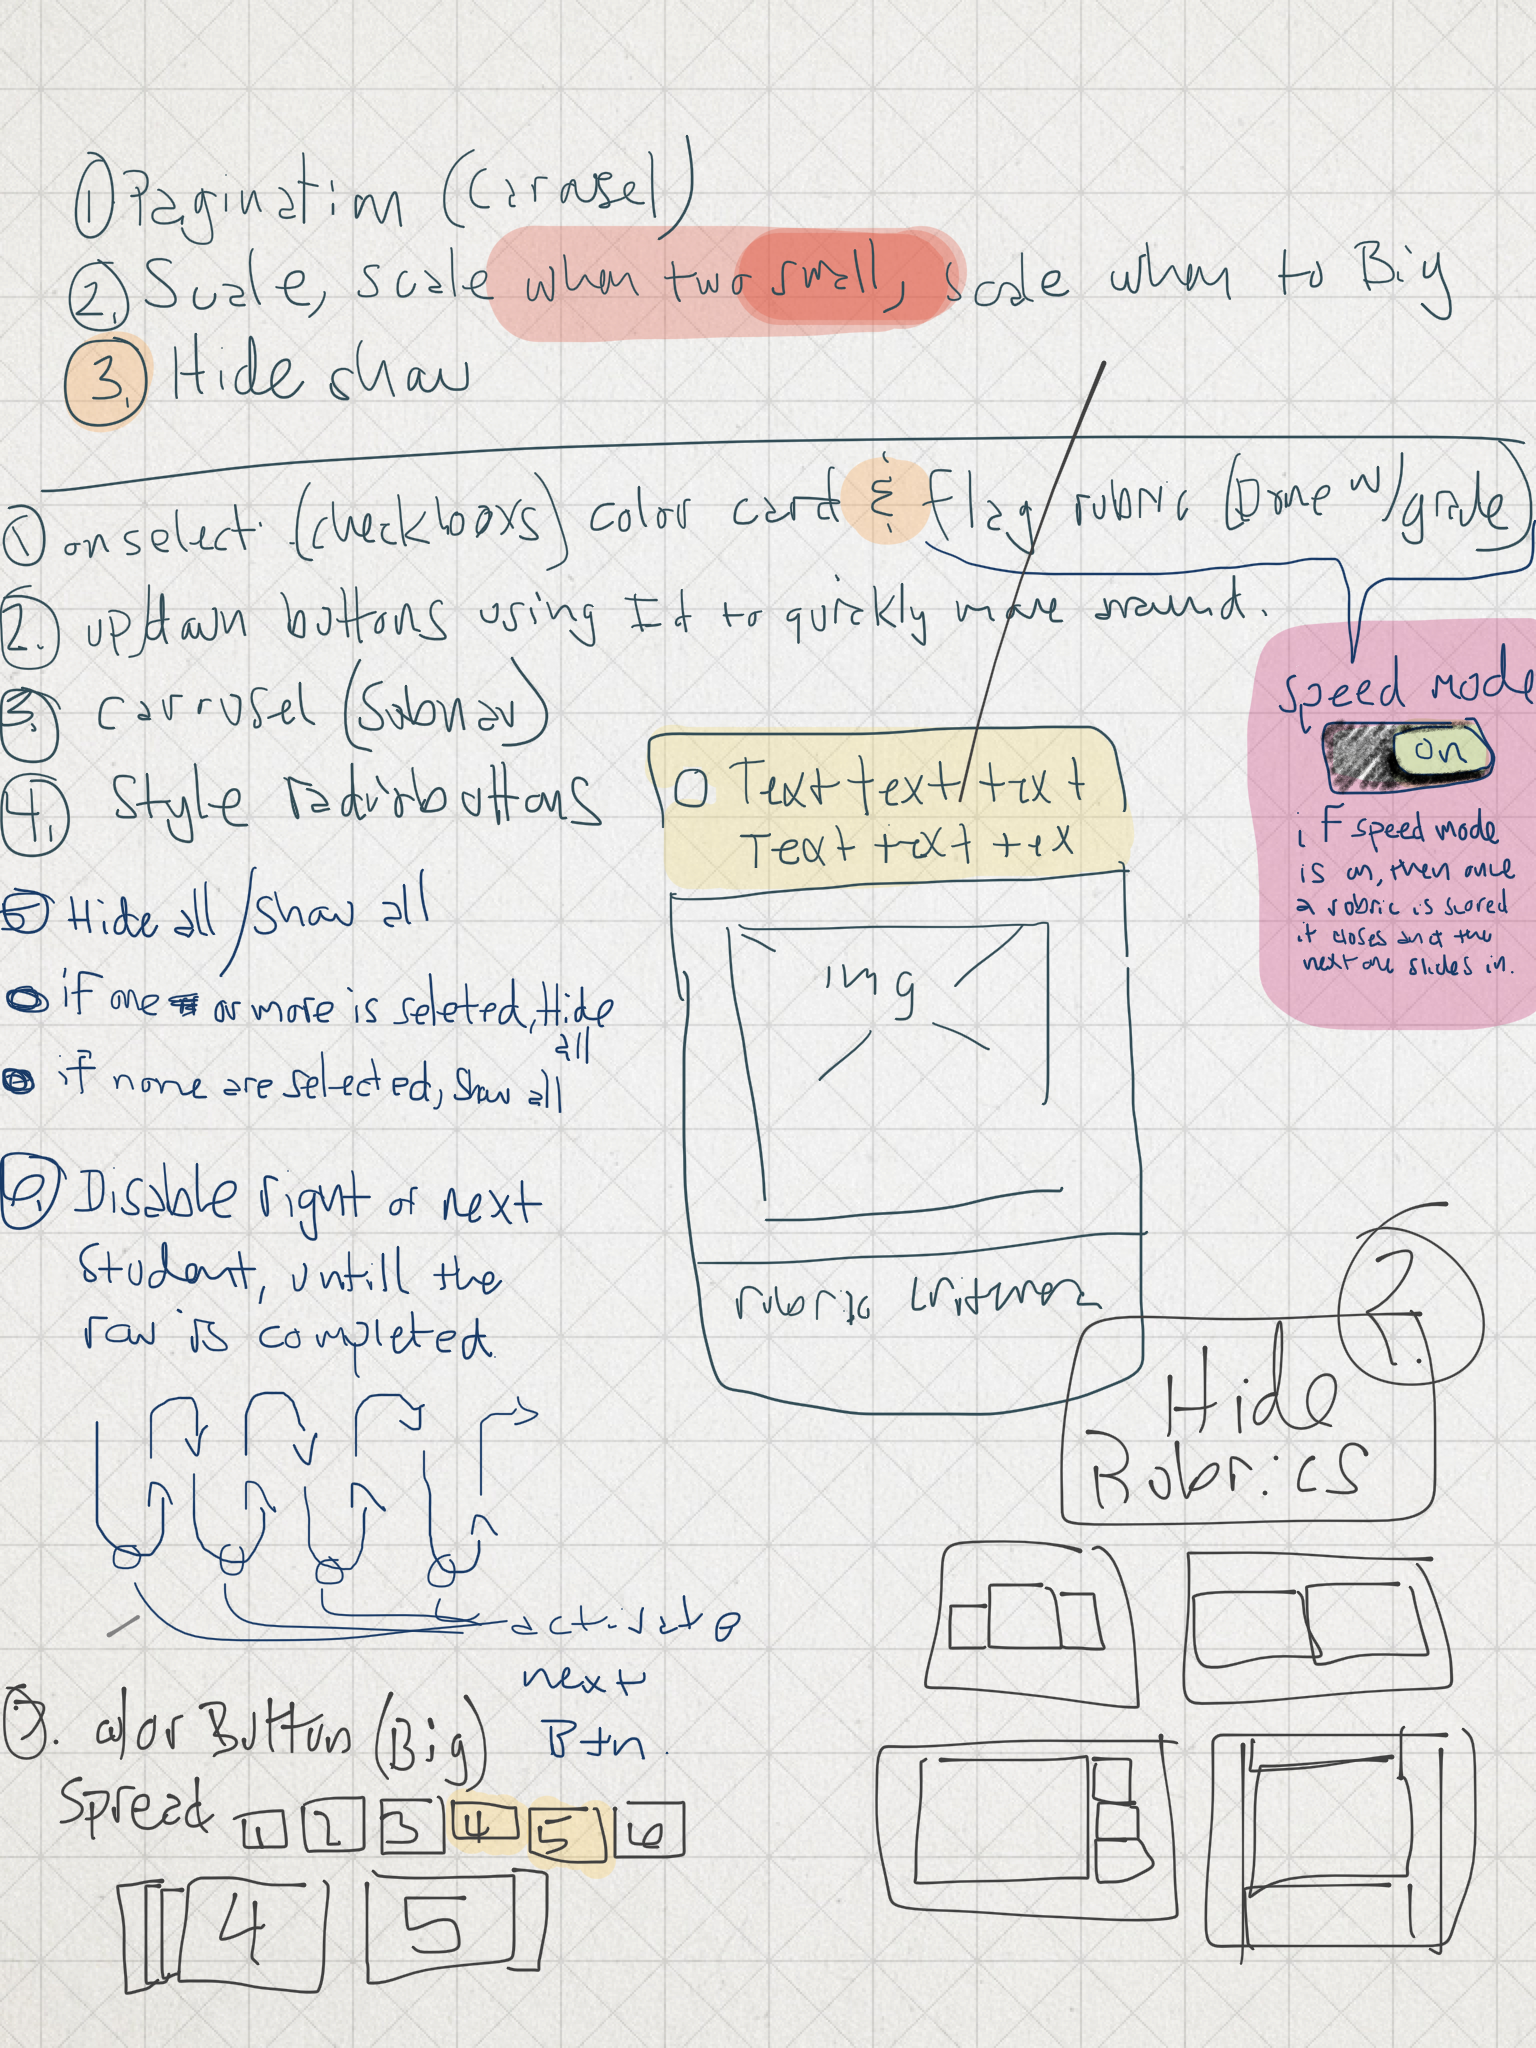 1. Pagination (Carasel)
2. Scale, scale when two small, scale when to Big
3. Hide show
1 on select (checkboxs) color card & flag rubric (Done w/grade)
2. up/down buttons using Id to quickly move around.
3. carrusel (Subnav)
4. Style radiobuttons
5 Hide all / Show all
if one or more is seleted, Hide all
if none are selected, Show all
6. Disable right or next
Student, untill the
row is completed.
activate
next
Btn.
7. color Button (Big)
Spread 1 2 3 4 5 6
4 5
Text text text
Text text tex
img
rubric
speed mode
on
if speed mode
is on, then once
a rubric is scored
it closes and the
next one slides in.
?
Hide
Rubrics